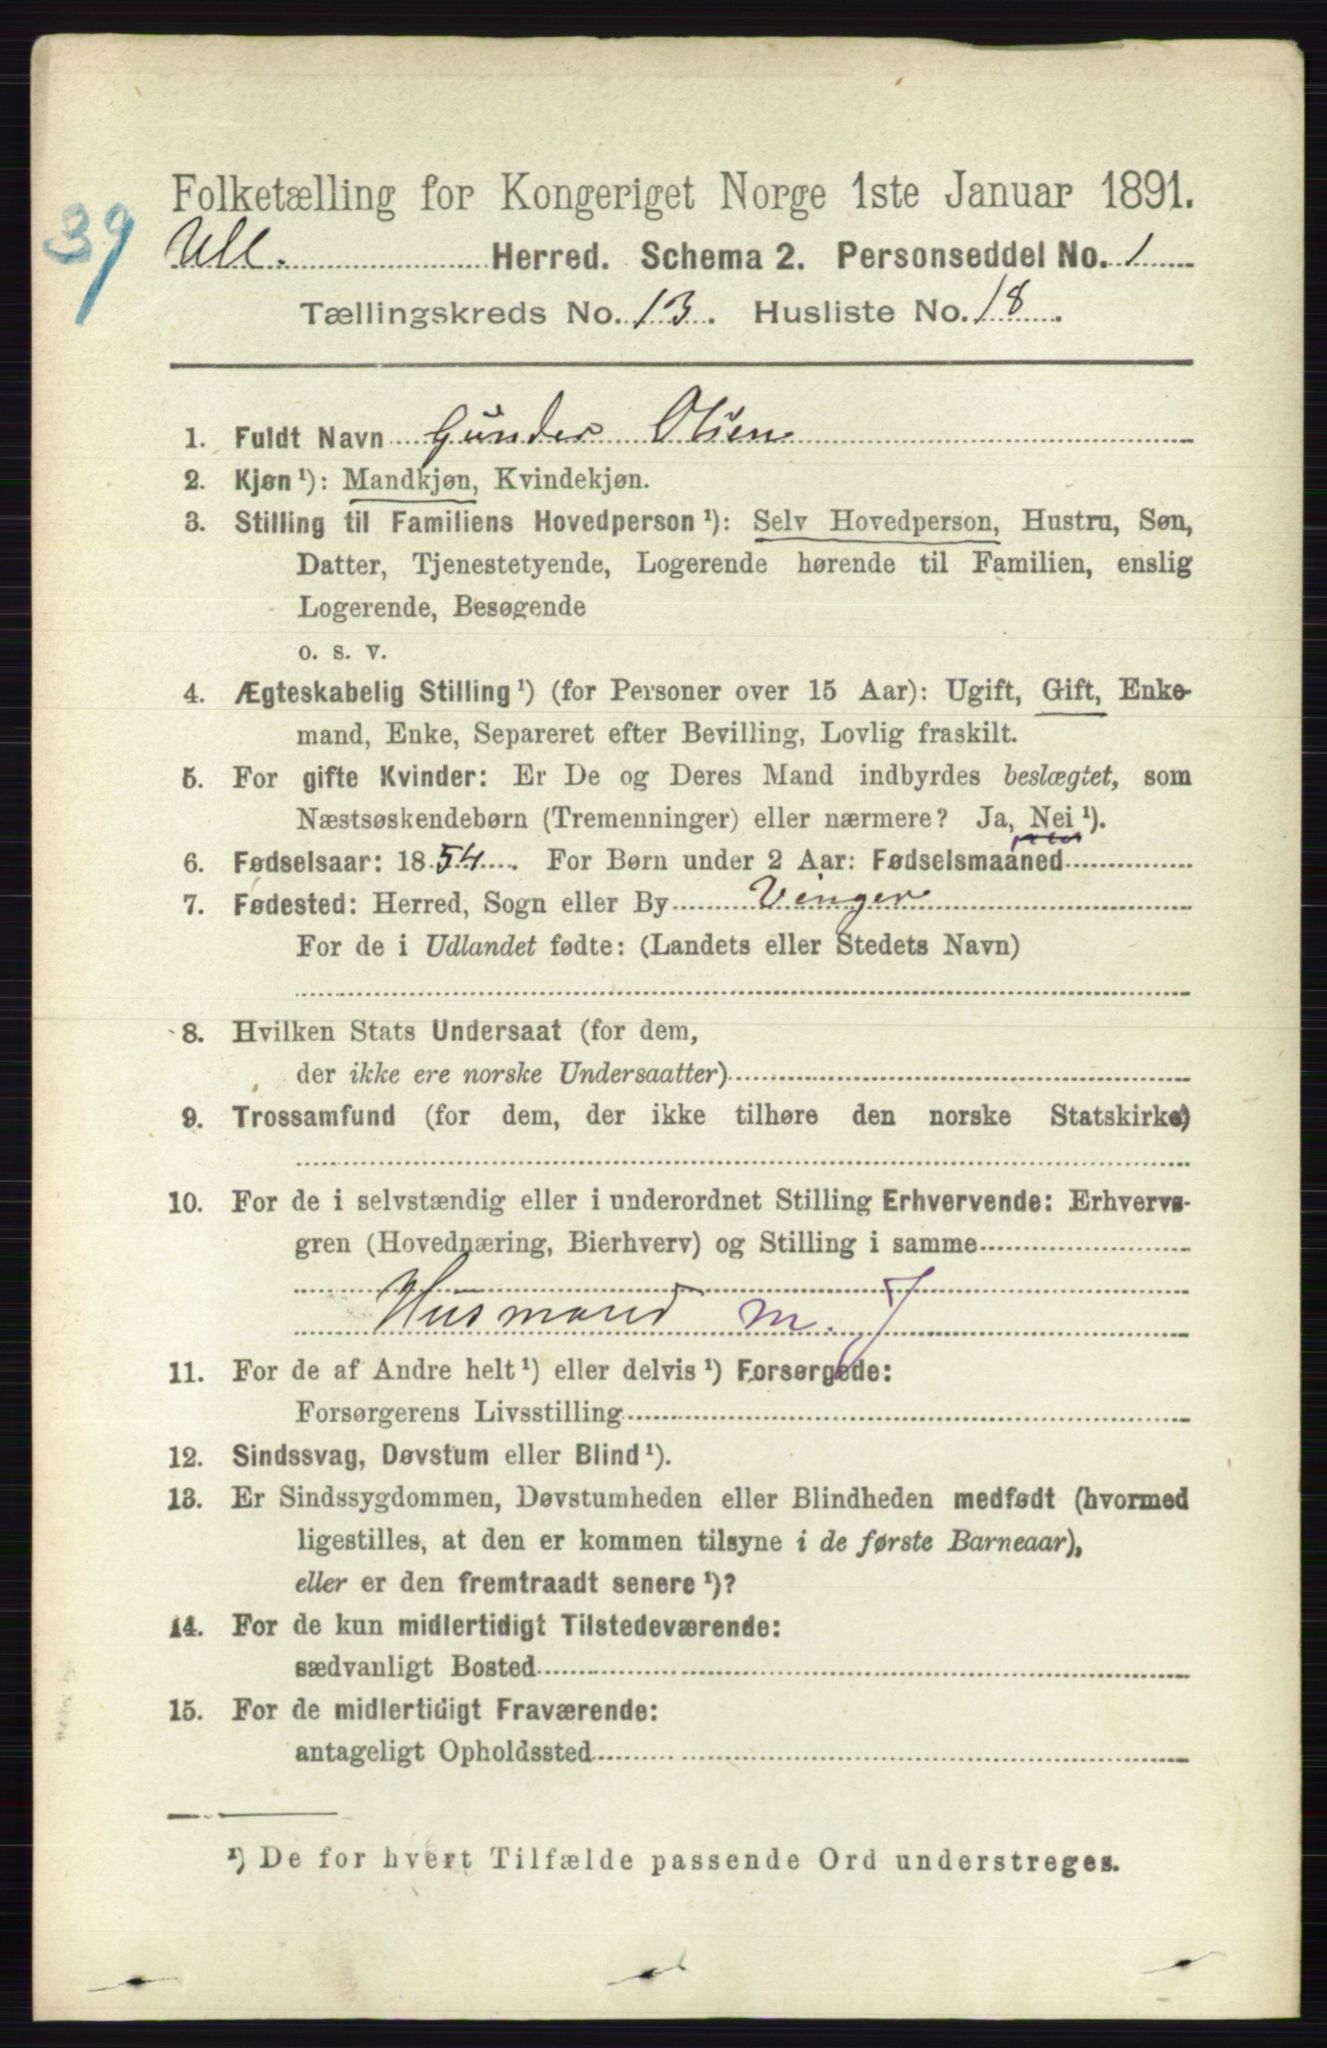 39
Folketælling for Kongeriget Norge 1ste Januar 1891.
Ull. Herred. Schema 2. Personseddel No. 1
Tællingskreds No. 13. Husliste No. 18.
1. Fuldt Navn Gunder Olsen
2. Kjøn ¹): Mandkjøn, Kvindekjøn.
3. Stilling til Familiens Hovedperson ¹): Selv Hovedperson, Hustru, Søn,
Datter, Tjenestetyende, Logerende hørende til Familien, enslig
Logerende, Besøgende
o. s. v.
4. Ægteskabelig Stilling ¹) (for Personer over 15 Aar): Ugift, Gift, Enke-
mand, Enke, Separeret efter Bevilling, Lovlig fraskilt.
5. For gifte Kvinder: Er De og Deres Mand indbyrdes beslægtet, som
Næstsøskendebørn (Tremenninger) eller nærmere? Ja, Nei ¹).
6. Fødselsaar: 1854. For Børn under 2 Aar: Fødselsmaaned
7. Fødested: Herred, Sogn eller By Vinger
For de i Udlandet fødte: (Landets eller Stedets Navn)
8. Hvilken Stats Undersaat (for dem,
der ikke ere norske Undersaatter)
9. Trossamfund (for dem, der ikke tilhøre den norske Statskirke)
10. For de i selvstændig eller i underordnet Stilling Erhvervende: Erhvervs-
gren (Hovednæring, Bierhverv) og Stilling i samme
Husmand m. J
11. For de af Andre helt ¹) eller delvis ¹) Forsørgede:
Forsørgerens Livsstilling
12. Sindssvag, Døvstum eller Blind ¹).
13. Er Sindssygdommen, Døvstumheden eller Blindheden medfødt (hvormed
ligestilles, at den er kommen tilsyne i de første Barneaar),
eller er den fremtraadt senere ¹)?
14. For de kun midlertidigt Tilstedeværende:
sædvanligt Bosted
15. For de midlertidigt Fraværende:
antageligt Opholdssted
¹) De for hvert Tilfælde passende Ord understreges.